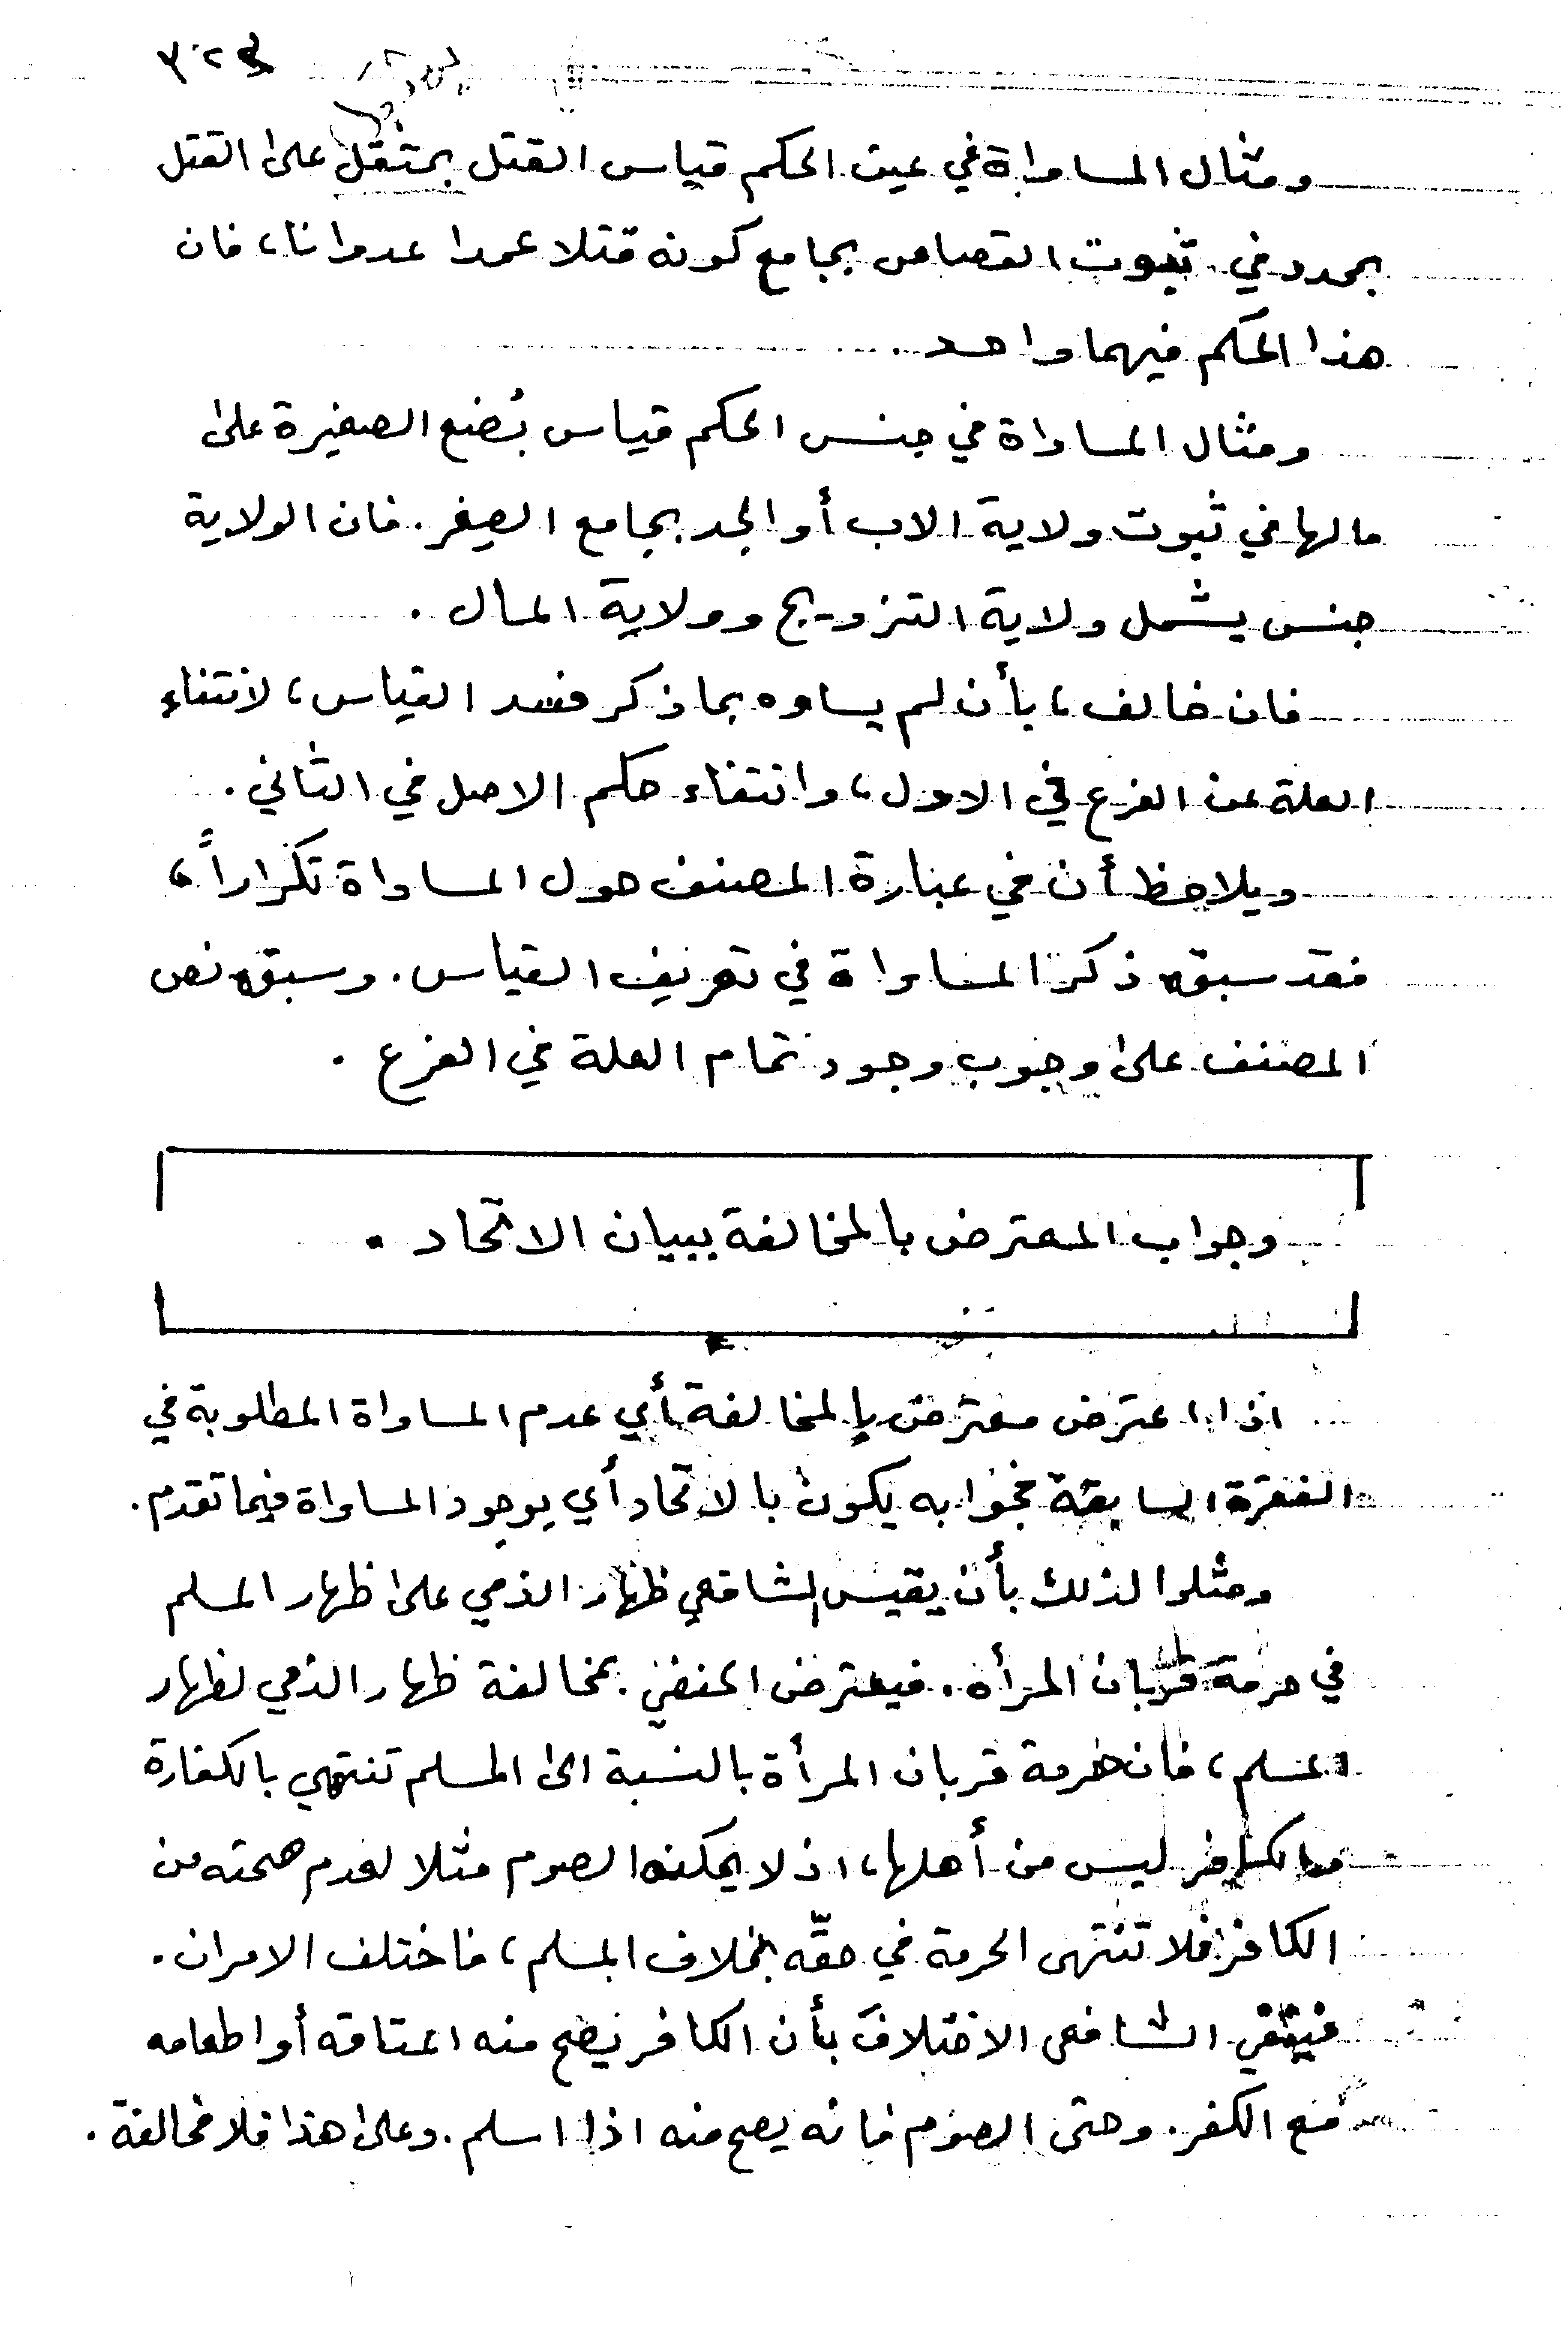 ومثال المساواة في عين الحكم قياس القتل بمثقل على القتل
بمحدد في ثبوت القصاص بجامع كونه قتلا عمدا عدوانا، فان
هذا الحكم فيهما واحد.
ومثال المساواة في جنس الحكم قياس بُضع الصغيرة على
مالها في ثبوت ولاية الاب أو الجد بجامع الصِغر. فان الولاية
جنس يشمل ولاية التزويج وولاية المال.
فان خالف، بأن لم يساوه بما ذكر فسد القياس، لانتفاء
العلة عن الفرع في الاول، وانتفاء حكم الاصل في الثاني.
ويلاحظ أن في عبارة المصنف حول المساواة تكراراً،
فقد سبق ذكر المساواة في تعريف القياس. وسبق نص
المصنف على وجوب وجود تمام العلة في الفرع.
وجواب المعترض بالمخالفة ببيان الاتحاد.
اذا اعترض معترض بالمخالفة أي عدم المساواة المطلوبة في
الفقرة السابقة فجوابه يكون بالاتحاد أي بوجود المساواة فيما تقدم.
ومثلوا لذلك بأن يقيس الشافعي ظهار الذمي على ظهار المسلم
في حرمة قربان المرأة. فيعترض الحنفي بمخالفة ظهار الذمي لظهار
المسلم، فان حرمة قربان المرأة بالنسبة الى المسلم تنتهي بالكفارة
والكافر ليس من أهلها، اذ لا يمكنه الصوم مثلا لعدم صحته من
الكافر فلا تنتهى الحرمة في حقّه بخلاف المسلم، فاختلف الامران.
فينفي الشافعى الاختلاف بأن الكافر يصح منه اعتاقه أو اطعامه
مع الكفر. وحتى الصوم فانه يصح منه اذا اسلم. وعلى هذا فلا مخالفة.